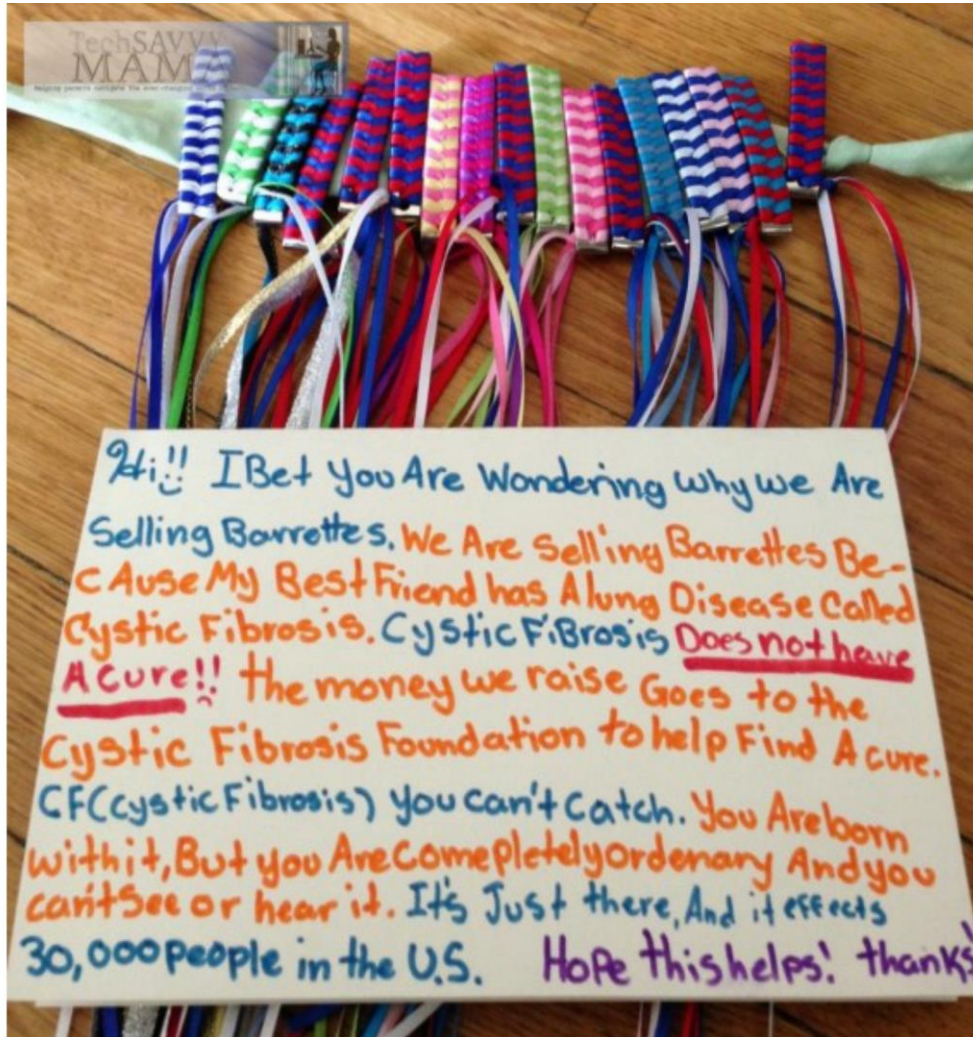 TechSAVVY
MAMA
Hi!! I Bet You Are Wondering Why we Are
Selling Barrettes. We Are Selling Barrettes Be-
cAuse My Best Friend has A lung Disease Called
Cystic Fibrosis. Cystic FiBrosis Does not have
A cure!! the money we raise Goes to the
Cystic Fibrosis Foundation to help Find A cure.
CF(cystic Fibrosis) you can't catch. You Are born
with it, But you Are comepletely ordenary And you
can't See or hear it. It's Just there, And it effects
30,000 people in the U.S. Hope this helps! thanks!